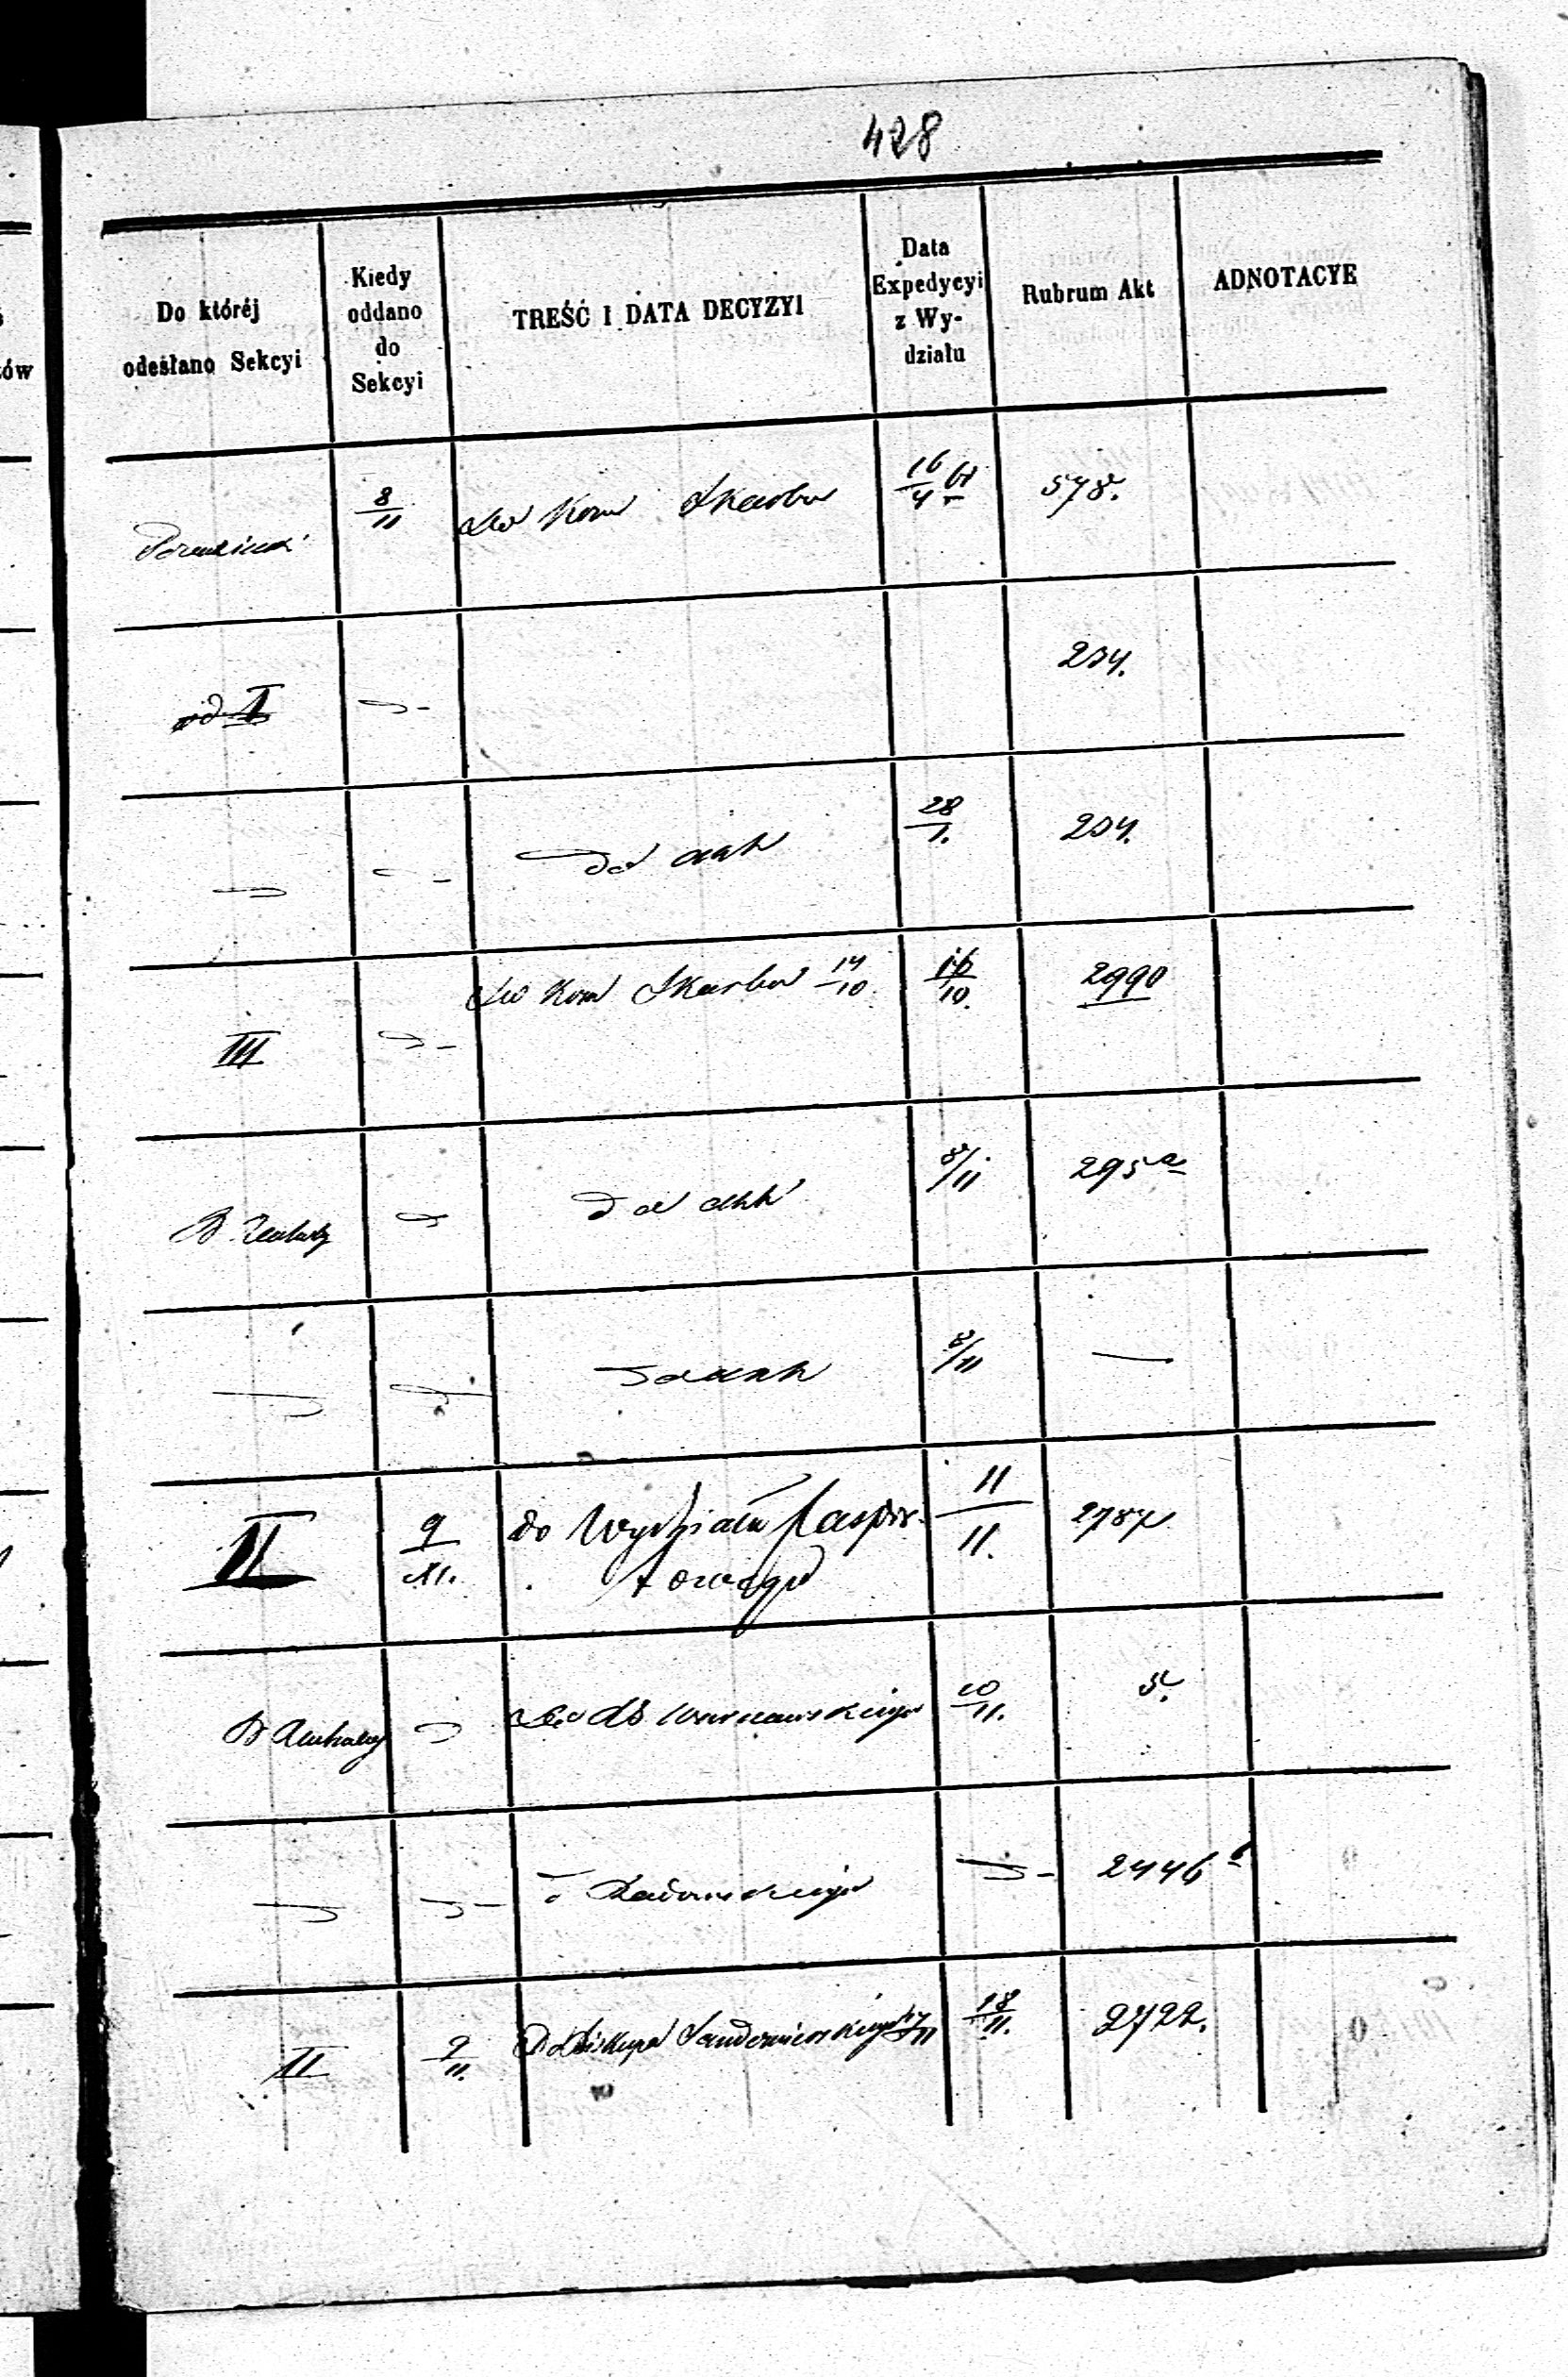 428
Do któréj odesłano Sekcyi
Kiedy oddano do Sekcyi
TREŚĆ I DATA DECYZYI
Data Expedycyi z Wydziału
Rubrum Akt
ADNOTACYE
8/11 Do Kom Skarbu 16/4 578.
od I 254.
do akt 28/1. 254.
III Do Kom Skarbu 14/10 16/10. 2990
do akt 8/11 295a
do akt 8/11 —
II 9/11. do Wydziału Paszpor- 11/11. 2787
towego
Do Warszawskiego 10/11.
" Radomskiego 2446
II 9/11. Do Biskupa Sandomierskiego 17/11 18/11. 2722.